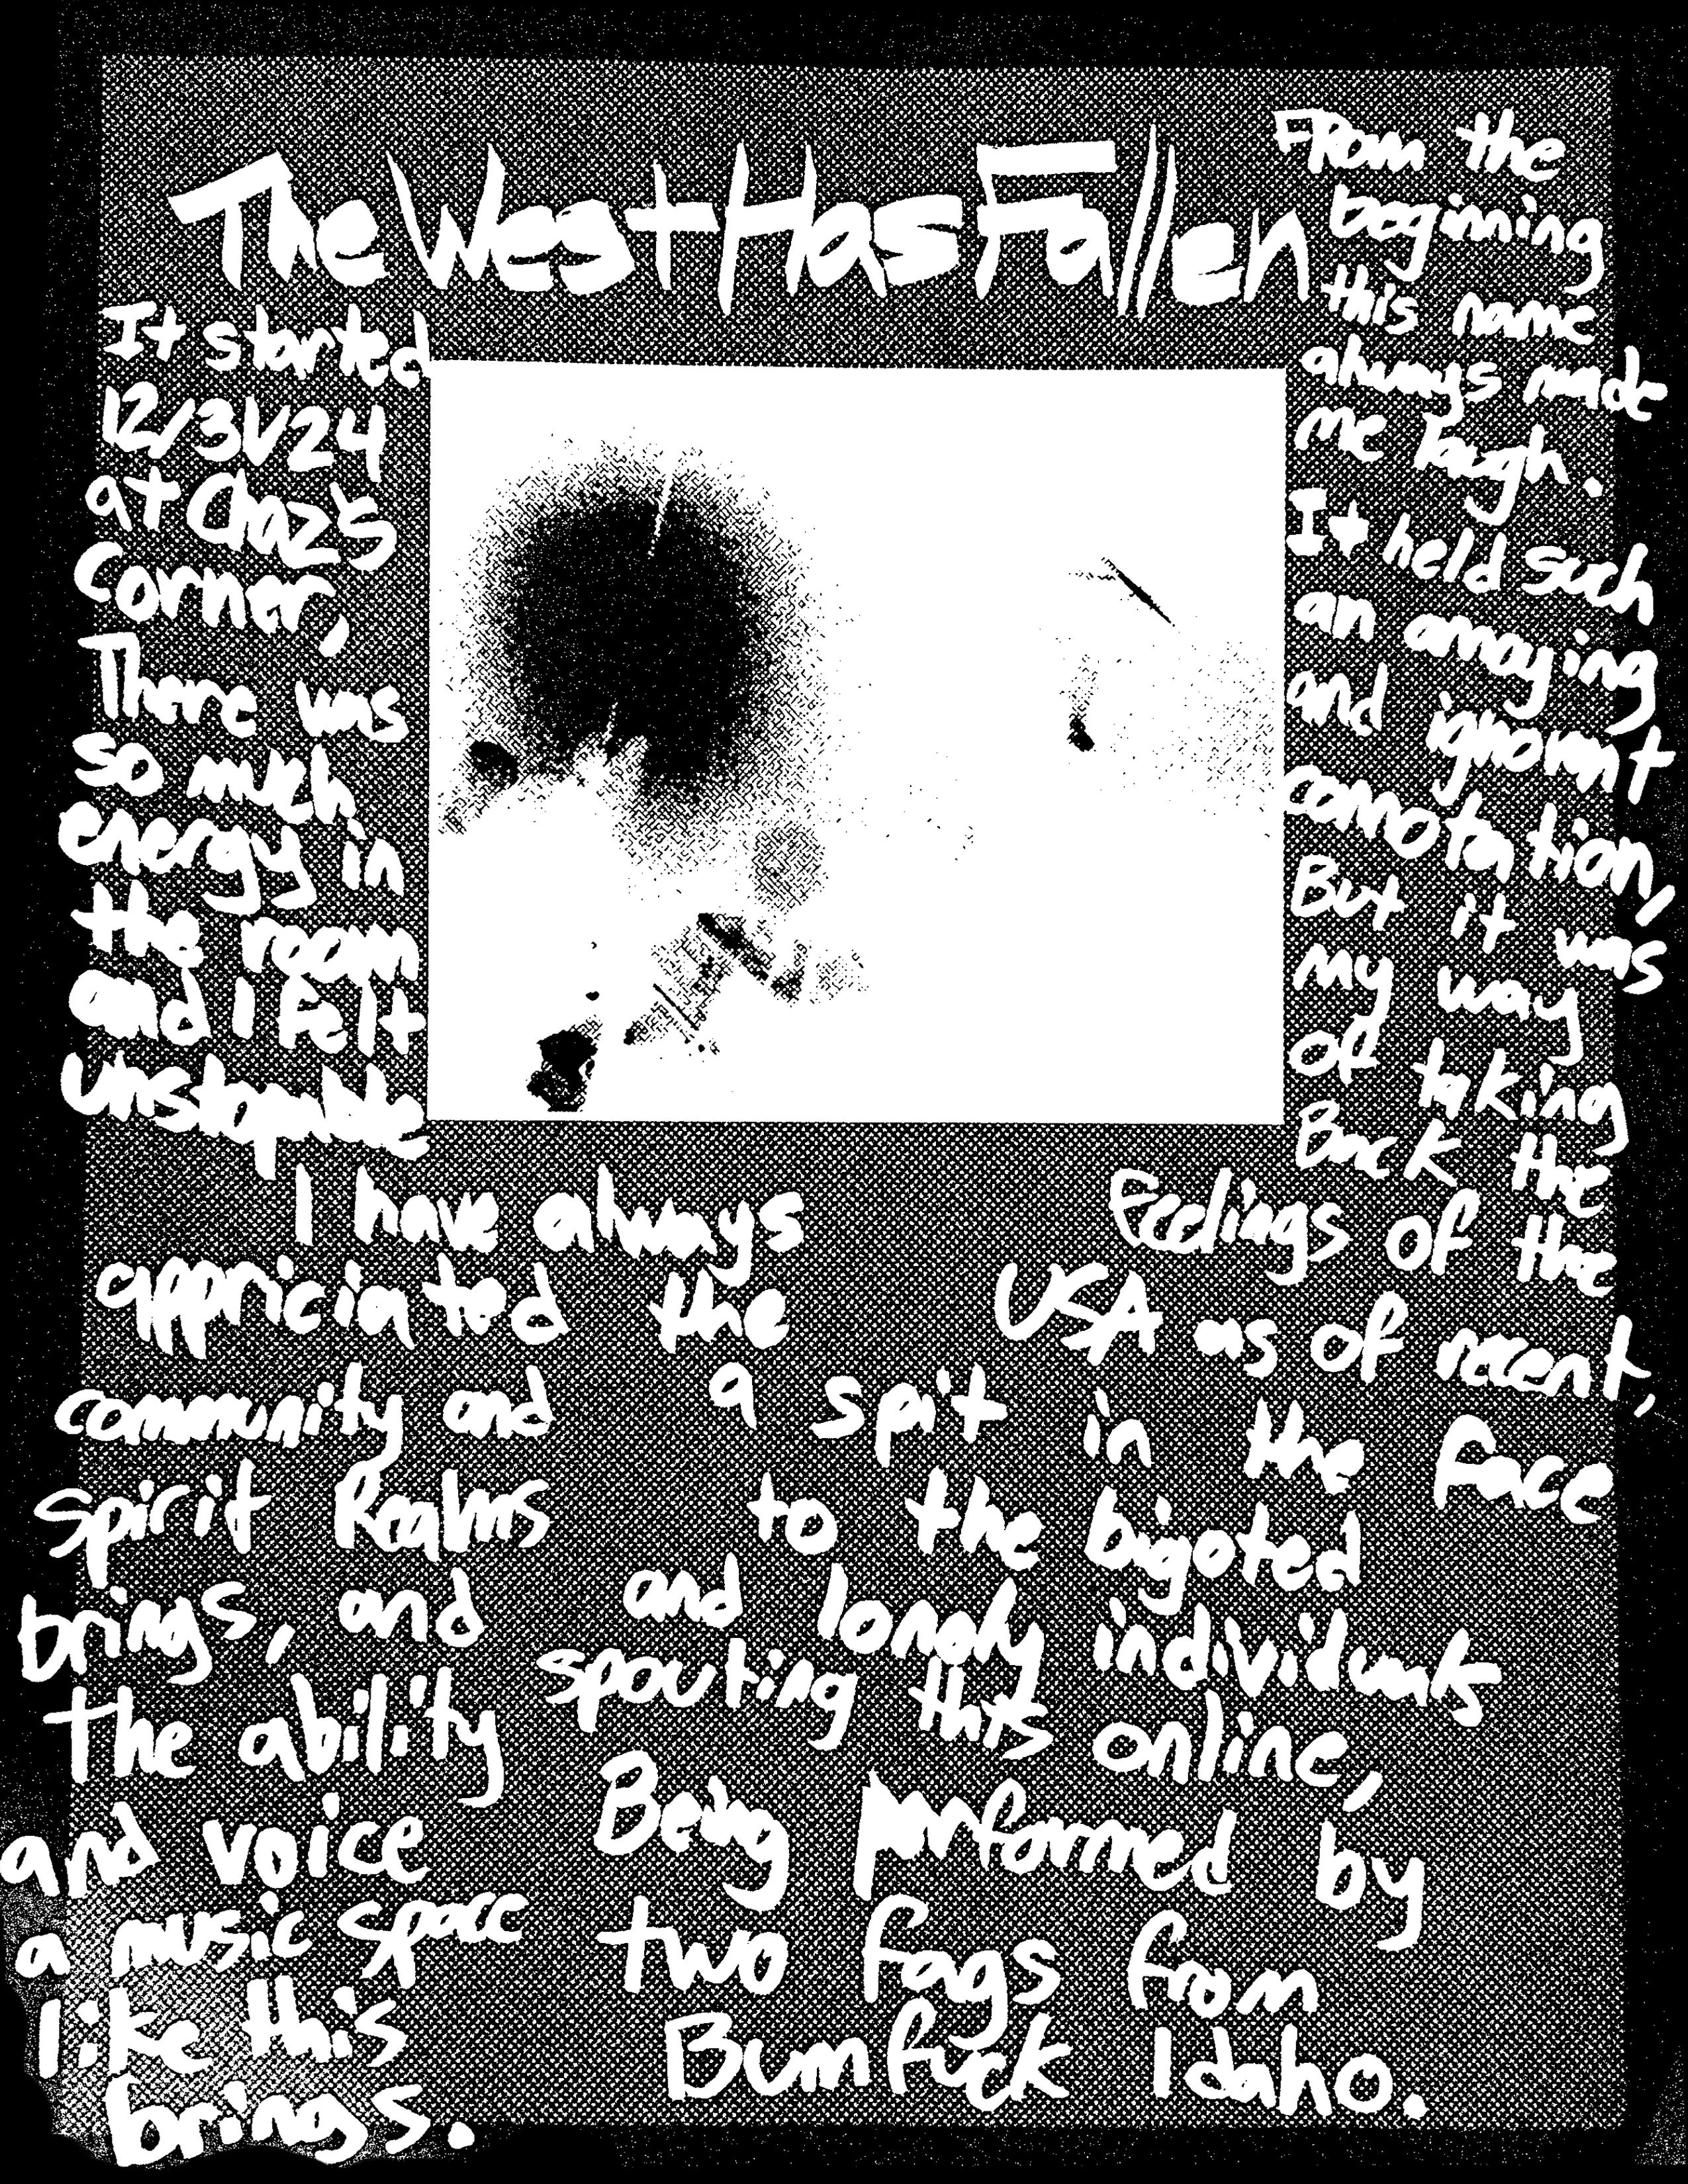 The West Has Fallen
It started
12/31/24
at Chaz's
Corner,
There was
so much
energy in
the room
and I felt
unstopable
I have always
appriciated the
community and
spirit Realms
brings, and
the ability
and voice
a music space
like this
brings.
From the
beginning
this name
always made
me laugh.
It held such
an annoying
and ignorant
connotation,
But it was
my way
of taking
Back the
feelings of the
USA as of recent,
a spit in the face
to the bigoted
and lonely individuals
spouting this online,
Being performed by
two fags from
Bumfuck Idaho.